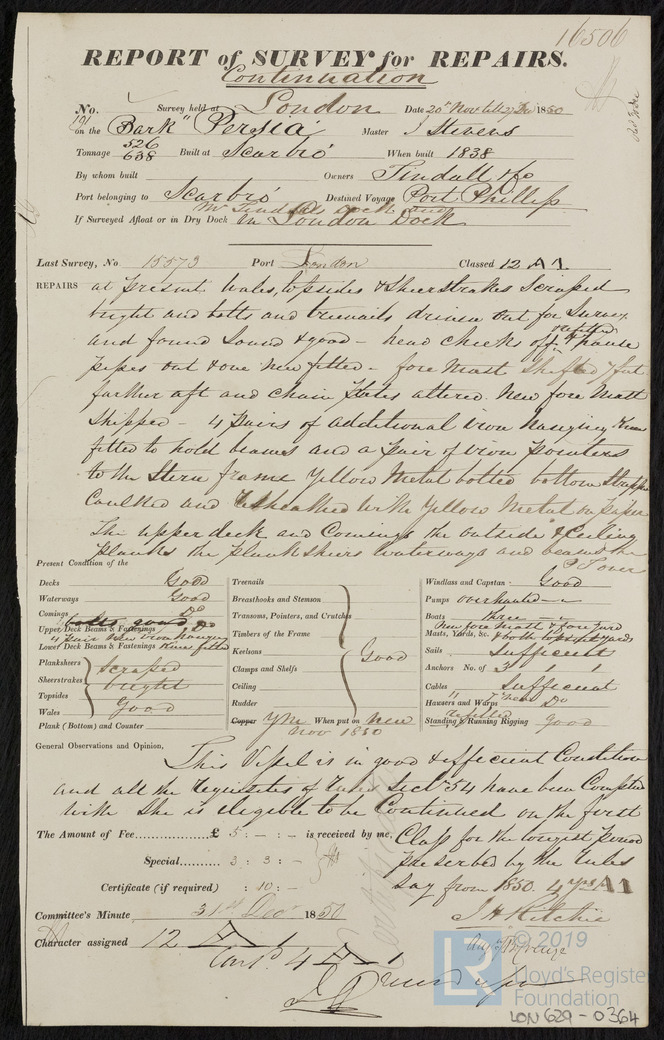 16506
REPORT of SURVEY for REPAIRS.
Continuation
No. 191 Survey held at London Date 20th Nov till 27 Dec 1850
on the Bark "Persia" Master J Stevens
Tonnage 526 638 Built at Scarbro' When built 1838
By whom built Owners Tindall & Co
Port belonging to Scarbro' Destined Voyage Port Phillip
If Surveyed Afloat or in Dry Dock Mr Tindall's dock and in London Dock
Last Survey, No 15573 Port London Classed 12 A 1
REPAIRS at present Wales, topsides & Sheerstrakes Scraped
bright and bolts and treenails driven out for Survey
and found Sound & good - head cheeks off & refitted hause
pipes out & one new fitted - fore Mast Shifted
further aft and chain plates altered. New fore Mast
Shipped - 4 pairs of additional iron hanging Knees
fitted to hold beams and a pair of iron pointers
to the Stern frame Yellow Metal bolted bottom Stripped
Caulked and resheathed with Yellow Metal on paper
The upper deck and Comings the outside & Ceiling
planks the planksheers waterways and beams the
P T over
Present Condition of the
Decks Good
Waterways Good
Comings Do
Upper Deck Beams & Fastenings Do
4 Pair New iron hanging
Lower Deck Beams & Fastenings Knees fitted
Planksheers
Sheerstrakes
Topsides
Wales
Scraped bright Good
Plank (Bottom) and Counter
Treenails
Breasthooks and Stemson
Transoms, Pointers, and Crutches
Timbers of the Frame
Keelsons
Clamps and Shelfs
Ceiling
Rudder
Good
Copper YM When put on New
Nov 1850
Windlass and Capstan Good
Pumps overhauled
Boats three
New fore Mast & fore yard
Masts, Yards, &c. & both topsail yards
Sails Sufficient
Anchors No. of 3 1 1
Cables Sufficient
Hausers and Warps 1 New Do
refitted
Standing & Running Rigging good
General Observations and Opinion, This Vessel is in good & efficient Condition
and all the requisites of Rules Sectn 54 have been Complied
with She is eligible to be Continued on the first
Class for the longest period
prescribed by the rules
Say from 1850. 4 yrs A1
The Amount of Fee............... £ 5 : - : - is received by me,
Special......... 3 : 3 : -
Certificate (if required) : 10 : -
J H Ritchie
Committee's Minute 31st Decr 1850
Character assigned 12 A 1
Contd 4 A 1
© 2019
Lloyd's Register
Foundation
LR
LON 629 - 0364